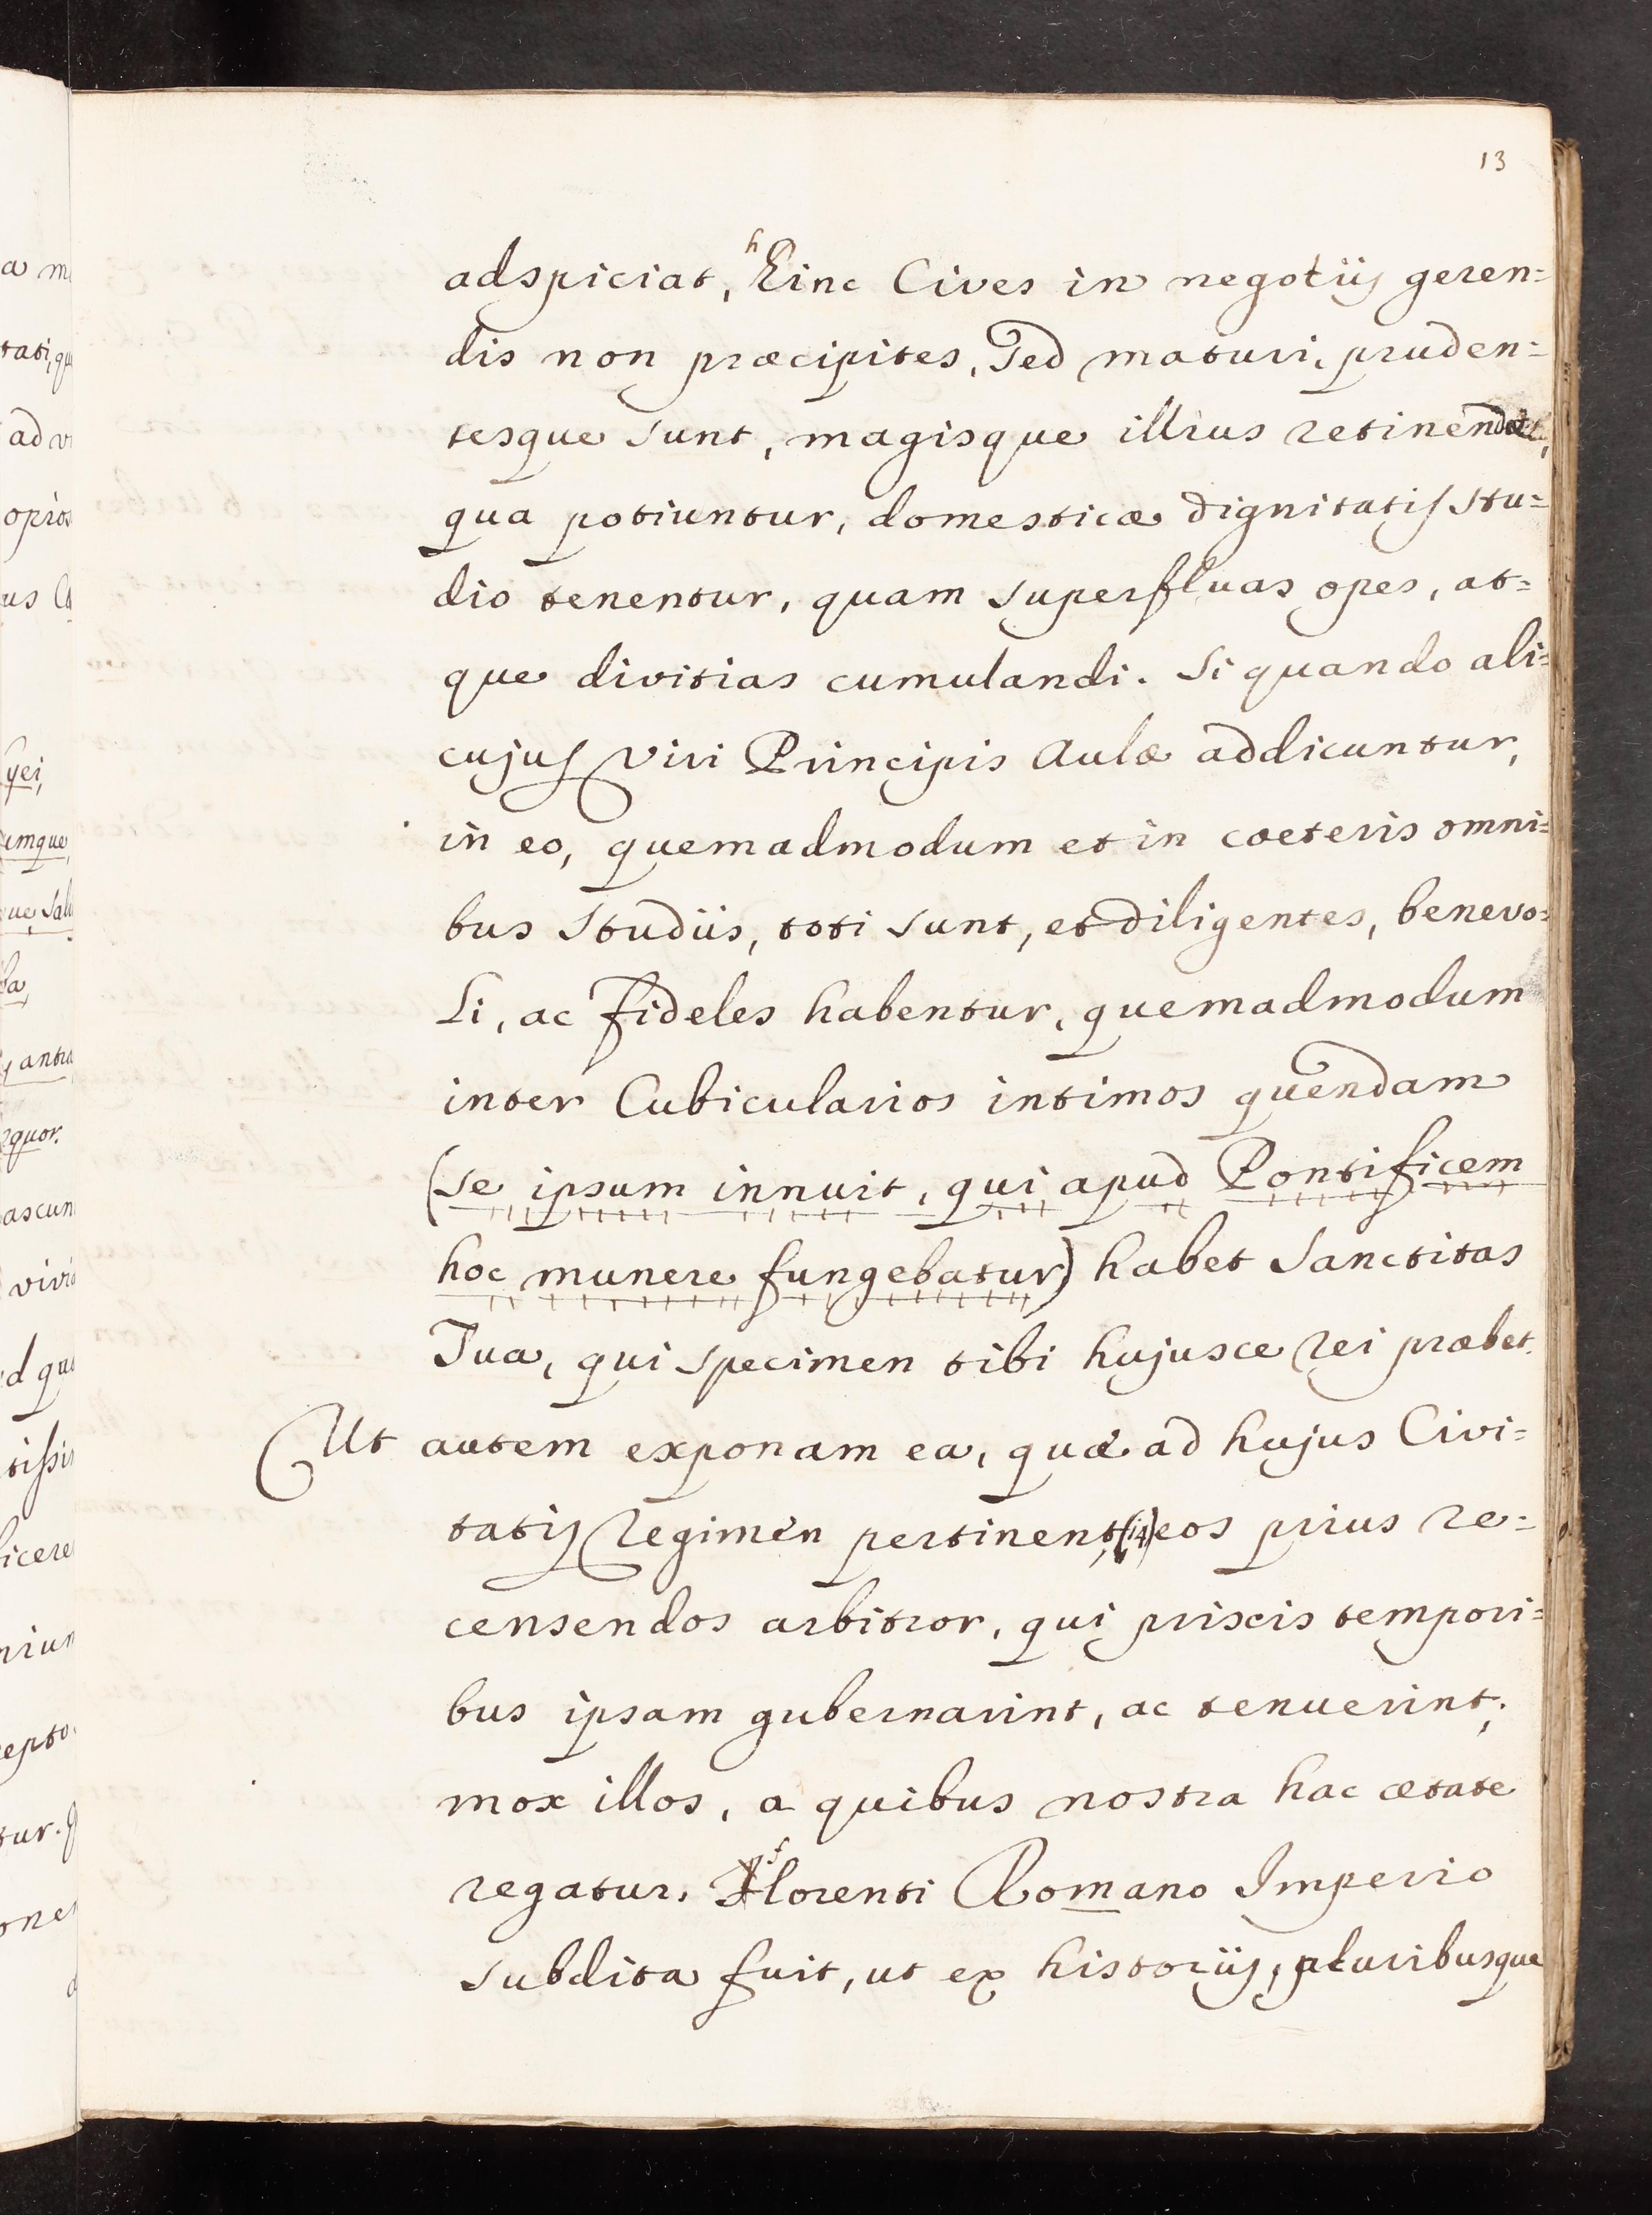 13
adspiciat, hinc Cives in negotijs geren=
dis non præcipites, Sed maturi, pruden=
tesque sunt, magisque illius
qua potiuntur, domesticæ dignitatis stu=
dio tenentur, quam superfluas opes, at=
que divitias cumulandi. Si quando ali=
cujus viri Principis Aulæ addicuntur,
in eo, quemadmodum et in cœteris omni=
bus studiis, toti sunt, et diligentes, benevo=
li, ac fideles habentur, quemadmodum
inter Cubicularios intimos quendam
(se ipsum innuit, qui apud Pontificem
hoc munere fungebatur) habet Sanctitas
Tua, qui specimen tibi hujusce rei præbet.
Ut autem exponam ea, quæ ad hujus Civi=
tatis Regimen pertinent, (14) eos prius re=
censendos arbitror, qui priscis tempori=
bus ipsam gubernarint, ac tenuerint;
mox illos, a quibus nostra hac ætate
regatur. florenti Romano Imperio
subdita fuit, ut ex historijs, pluribusque